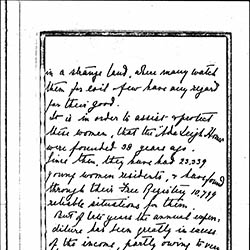 in a strange land, where many watch
them for evil & few have any regard
for their good.
It is in order to assist & protect
these women, that the Ada Leigh Homes
were founded 38 years ago.
Since then, they have had 23,339
young women residents, & have found
through their Free Registry 10,719
reliable situations for them.
But of late years the annual expen-
diture has been greatly in excess
of the income, partly owing to over